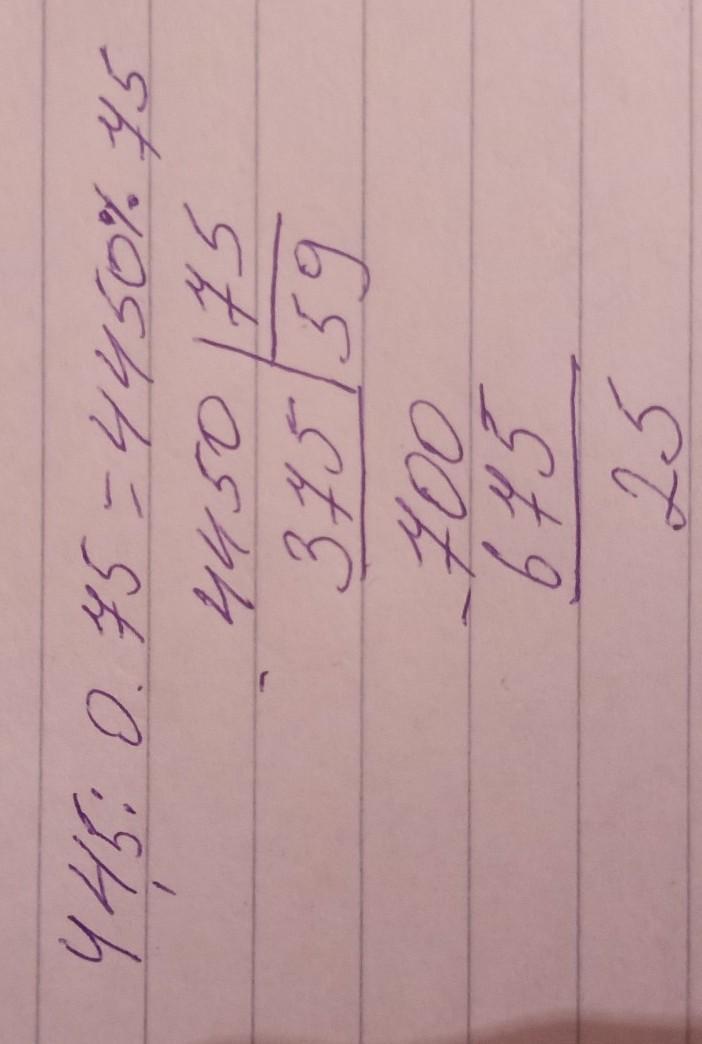 44,5: 0.75 = 4450 % 75
- 4450 | 75
375 | 59
- 700
675
25